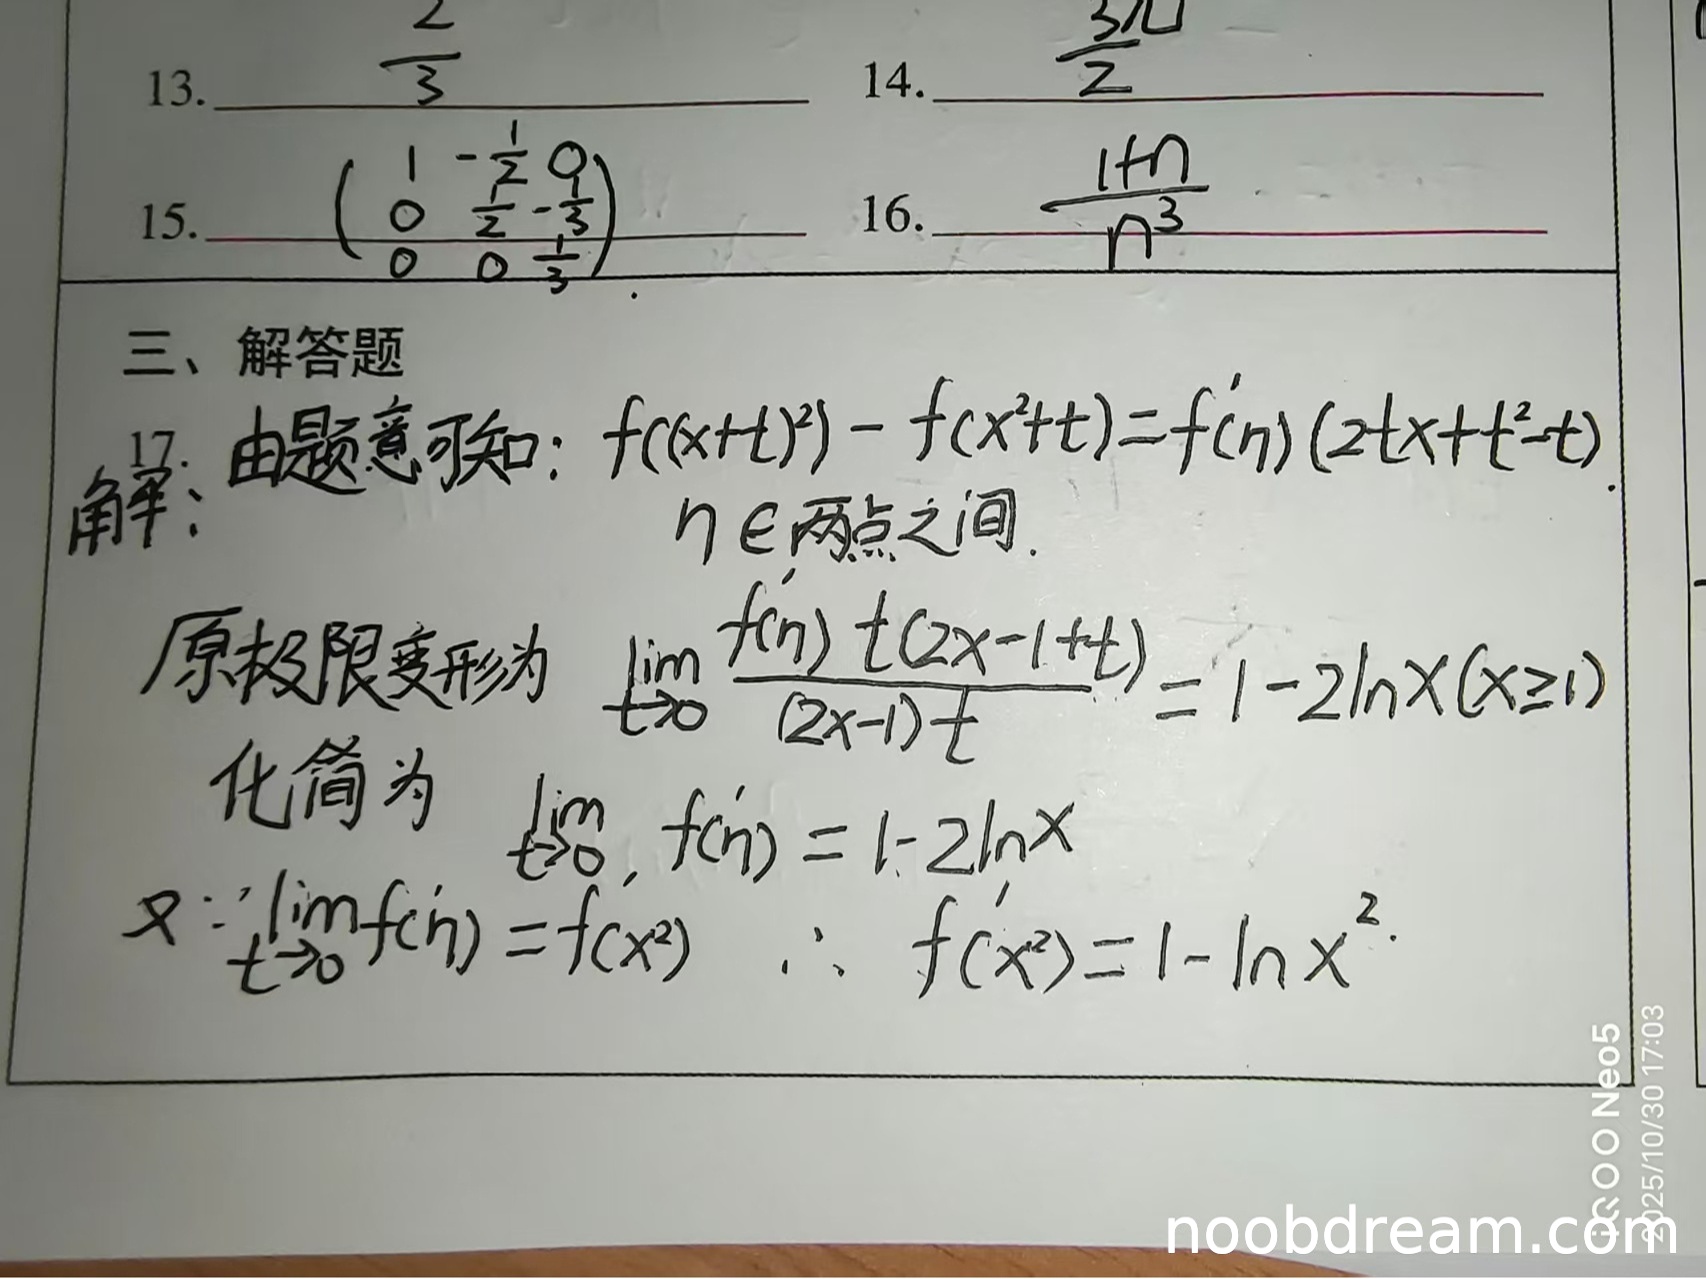 13. 2/3 14. 3π/2
15. ( 1 -1/2 0
0 1/2 -1/3
0 0 1/3 ) 16. 1+n/n³
三、解答题
17. 由题意可知: f((x+t)²) - f(x²+t) = f'(η)(2tx+t²-t).
解:
η∈两点之间.
原极限变形为 lim t→0 f'(η) t(2x-1+t) / (2x-1)t = 1-2lnx(x≥1)
化简为 lim t→0 f'(η) = 1-2lnx
又∵ lim t→0 f'(η) = f'(x²) ∴ f'(x²) = 1-lnx².
iQOO Neo5
2025/10/30 17:03
noobdream.com